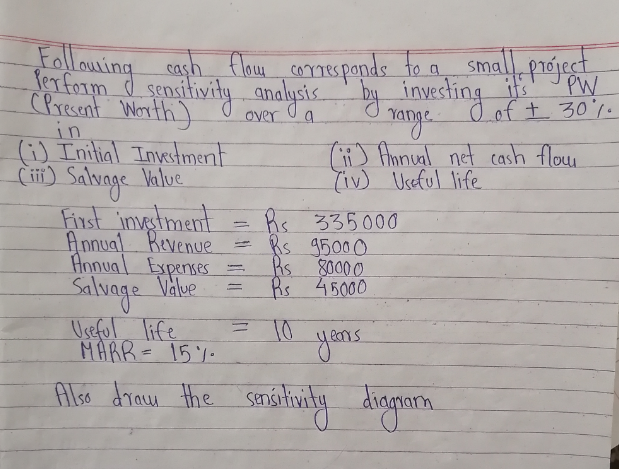 Following cash flow corresponds to a small project
Perform sensitivity analysis by investing it's PW
(Present Worth) over a range of ± 30%.
in
(i) Initial Investment (ii) Annual net cash flow
(iii) Salvage Value (iv) Useful life
First investment = Rs 335000
Annual Revenue = Rs 95000
Annual Expenses = Rs 80000
Salvage Value = Rs 45000
Useful life = 10 years
MARR = 15%.
Also draw the sensitivity diagram